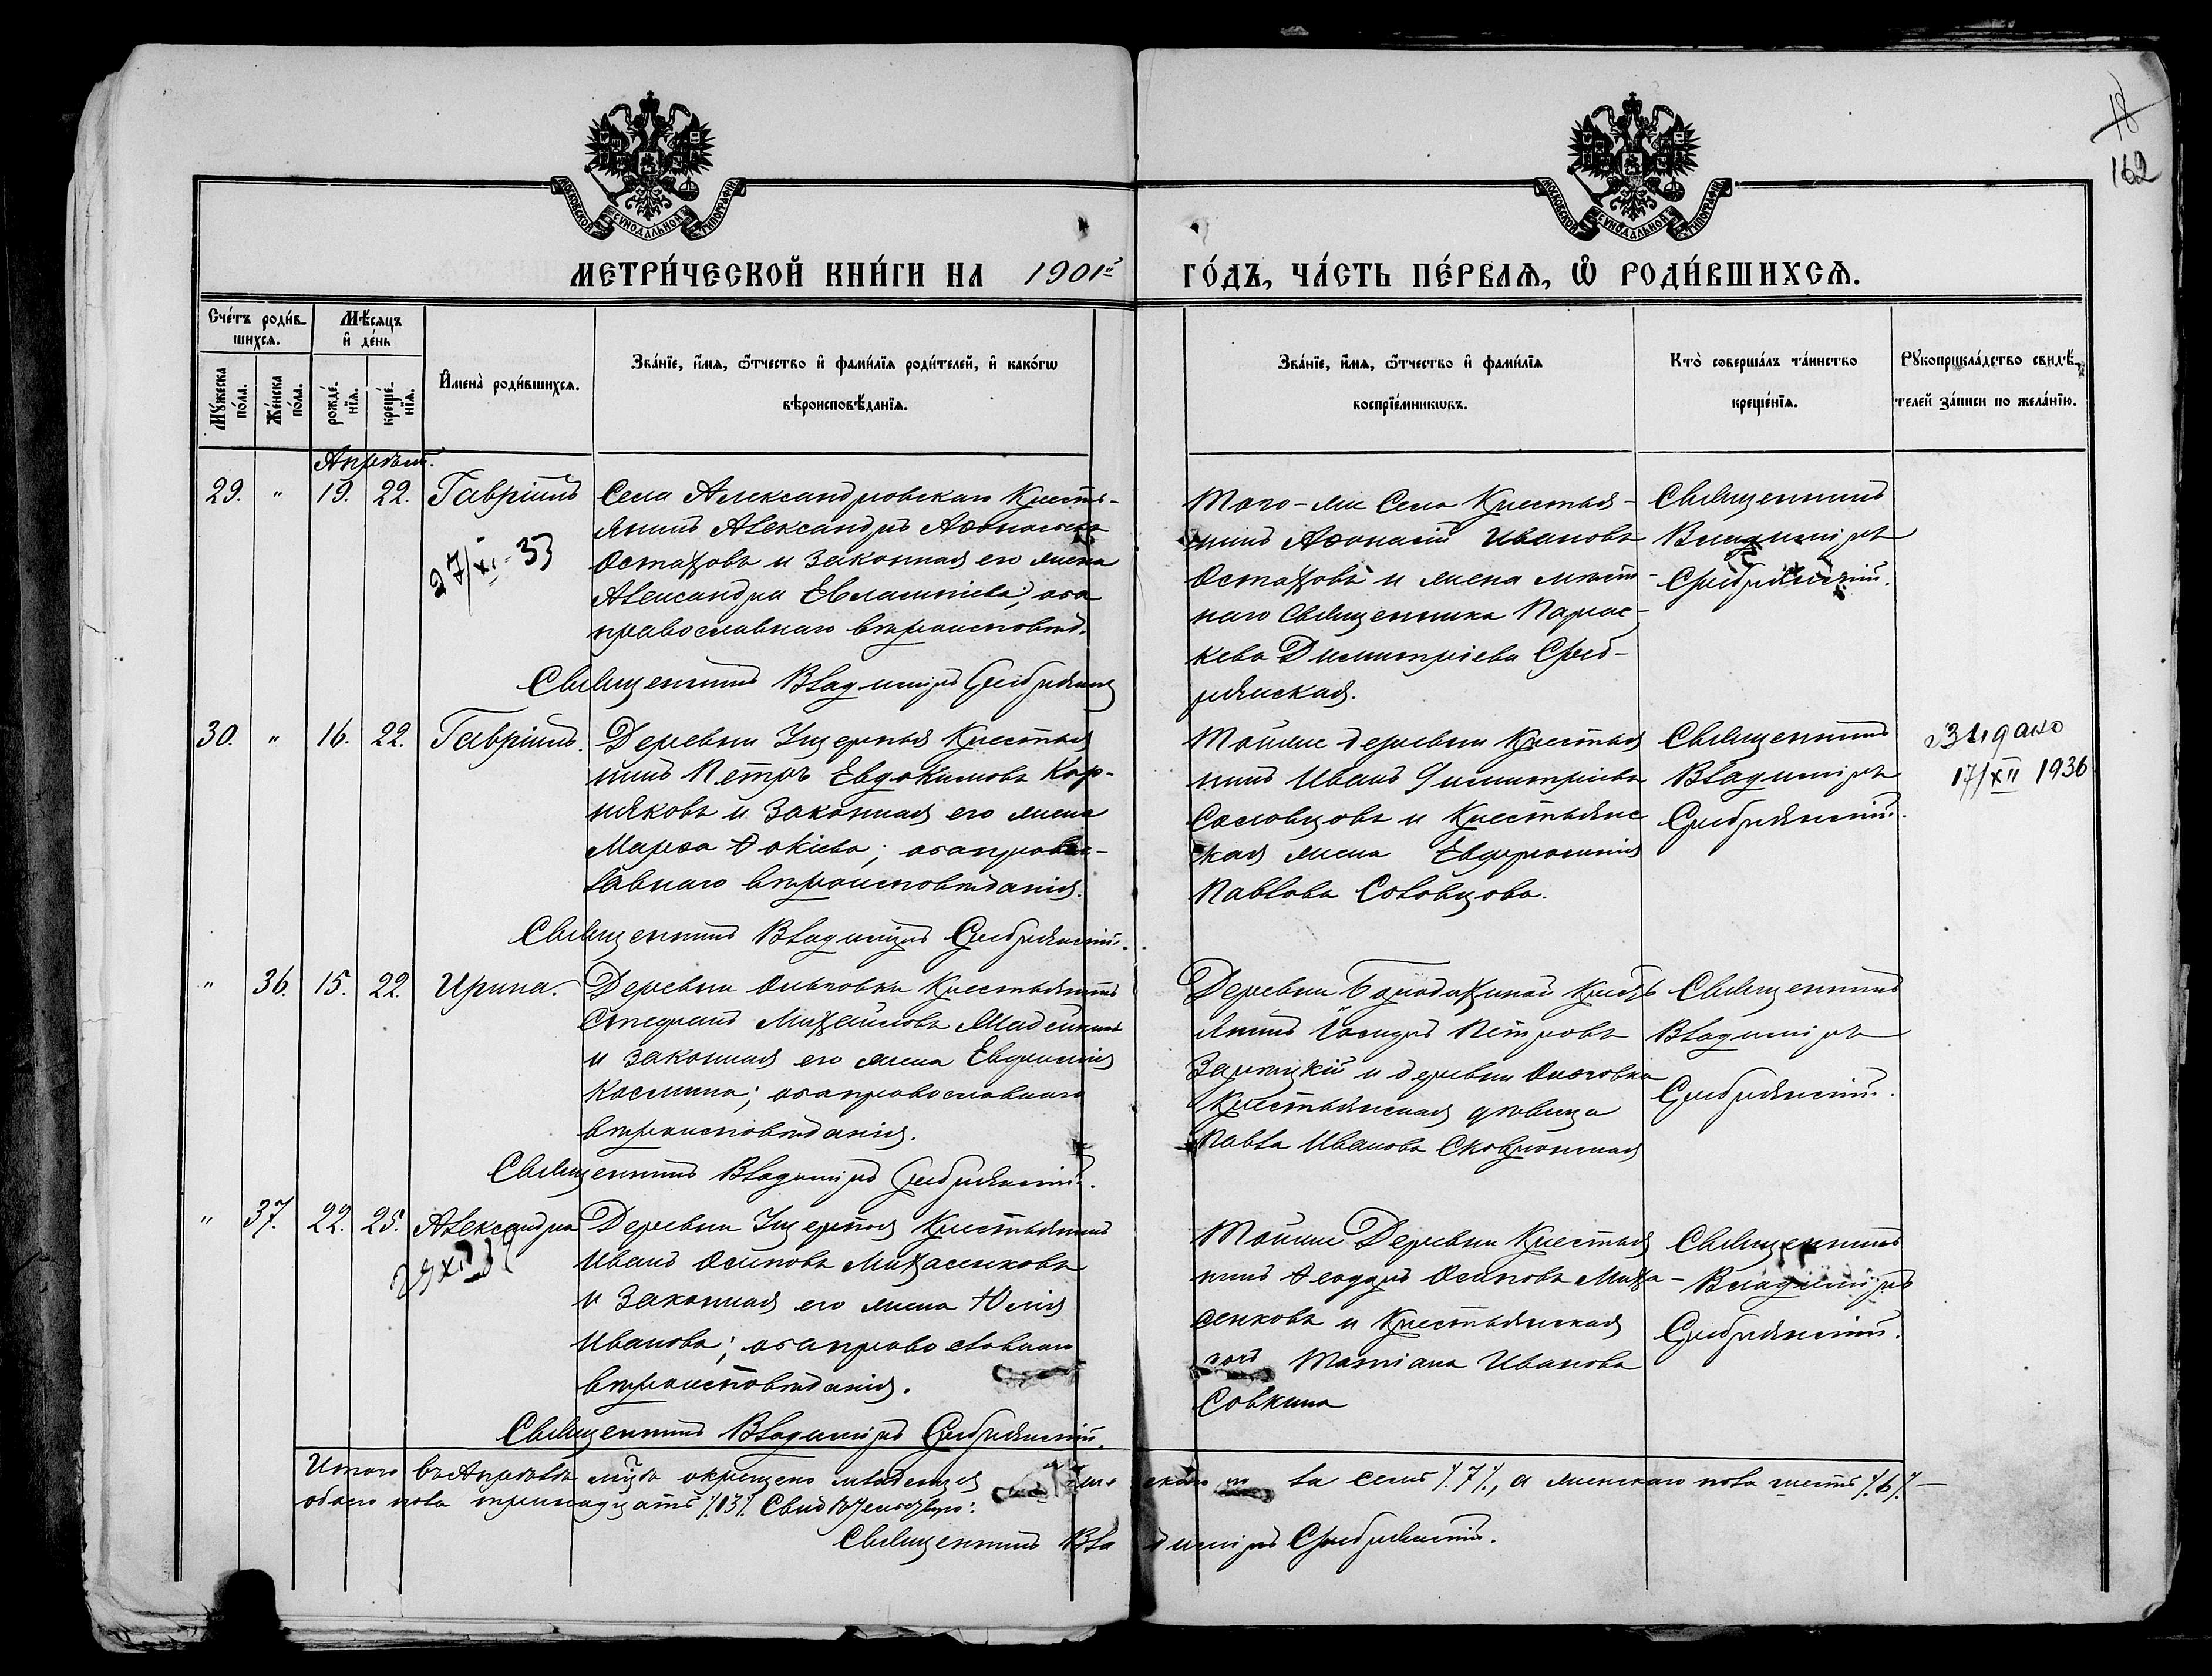 18
162
МОСКОВСКОЙ СѴНОДАЛЬНОЙ ТИПОГРАФІИ
МОСКОВСКОЙ СѴНОДАЛЬНОЙ ТИПОГРАФІИ
МЕТРИ́ЧЕСКОЙ КНИ́ГИ НА 1901й ГО́ДЪ, ЧА́СТЬ ПЕ́РВАѦ, Ѡ РОДИ́ВШИХСѦ.
Сче́тъ роди́в-
шихсѧ.
Мѣ́сѧцъ
и де́нь
Мꙋ́жеска по́ла.
Же́нска по́ла.
рожде́-
нїѧ.
креще́-
нїѧ.
Имена̀ роди́вшихсѧ.
Зва́нїе, и́мѧ, ѻ҆́тчество и фами́лїѧ роди́телей, и како́гѡ
вѣроисповѣ́данїѧ.
Зва́нїе, и́мѧ, ѻ҆́тчество и фами́лїѧ
воспрїе́мникѡвъ.
Кто̀ соверша́лъ та́инство
креще́нїѧ.
Рꙋкоприкла́дство свидѣ́-
телей за́писи по жела́нїю.
Апрѣль.
29. " 19. 22. Гавріилъ
27/XI-33
Села Александровскаго Кресть-
янинъ Александръ Аѳонасьевъ
Остаховъ и законная его жена
Александра Евлампіева; оба
православнаго вѣроисповѣд.
Священникъ Владиміръ Сребрянскій
Того-же Села Крестья-
нинъ Аѳонасій Ивановъ
Остаховъ и жена мѣст-
наго Священника Парас-
кева Димитріева Среб-
рянская.
Священникъ
Владиміръ
Сребрянскій.
30. " 16. 22. Гавріилъ.
Деревни Ущерпья Крестья
нинъ Петръ Евдокимовъ Кор-
няковъ и законная его жена
Марѳа Ѳокіева; оба правос-
лавнаго вѣроисповѣданія.
Священникъ Владиміръ Сребрянскій.
Тойже деревни Крестья
нинъ Иванъ Димитріевъ
Сословцовъ и Крестьянс
кая жена Евфросинія
Павлова Соловцова.
Священникъ
Владиміръ
Сребрянскій.
Выдано
17/XII 1936
" 36. 15. 22. Ирина.
Деревни Ольховки Крестьянинъ
Стефанъ Михайловъ
и законная его жена Евфимія
Космина; оба православнаго
вѣроисповѣданія.
Священникъ Владиміръ Сребрянскій.
Деревни Кресть
янинъ Іосифъ Петровъ
Зарѣцкій и деревни Ольховки
Крестьянская дѣвица
Павла Иванова
Священникъ
Владиміръ
Сребрянскій.
" 37. 22. 25. Александра
Деревни Ущерпья Крестьянинъ
Иванъ Осиповъ Михасенковъ
и законная его жена Юлія
Иванова; оба православнаго
вѣроисповѣданія.
Священникъ Владиміръ Сребрянскій.
Тойже Деревни Крестья
нинъ Ѳеодоръ Осиповъ Миха-
сенковъ и Крестьянская
Татіана Иванова
Совкина
Священникъ
Владиміръ
Сребрянскій.
Итого въ Апрѣлѣ мѣс. окрещено младенцев мужескаго пола семь /.7/., а женскаго пола шесть /.6/. —
обоего пола тринадцать /.13/.
Священникъ Владиміръ Сребрянскій.